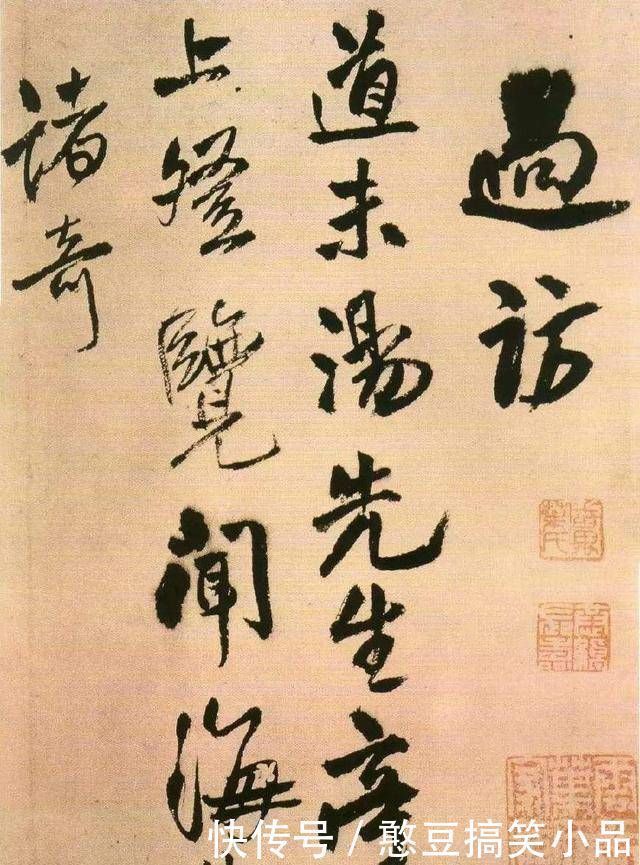 過訪
道未湯先生亭
上登覽聞海
諸奇
快传号／憨豆搞笑小品